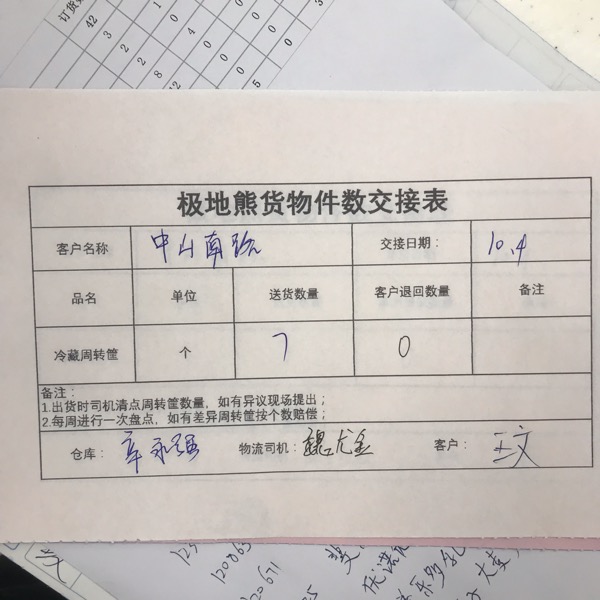 订货
42
3 1
2 0
2 4 0
8 0
12 2 0
5 0 3
极地熊货物件数交接表
客户名称 中山南路 交接日期： 10.4
品名 单位 送货数量 客户退回数量 备注
冷藏周转筐 个 7 0
备注：
1.出货时司机清点周转筐数量，如有异议现场提出；
2.每周进行一次盘点，如有差异周转筐按个数赔偿；
仓库： 章永强 物流司机： 魏尤金 客户： 王文
120671